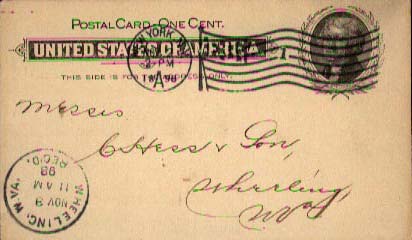 POSTAL CARD - ONE CENT.
UNITED STATES OF AMERICA
THIS SIDE IS FOR ONLY.
NEW YORK
2-PM
A
1
Messrs
C Hess & Son,
Wheeling,
W Va
WHEELING, W. VA.
NOV 9
11 AM
98
REC'D.